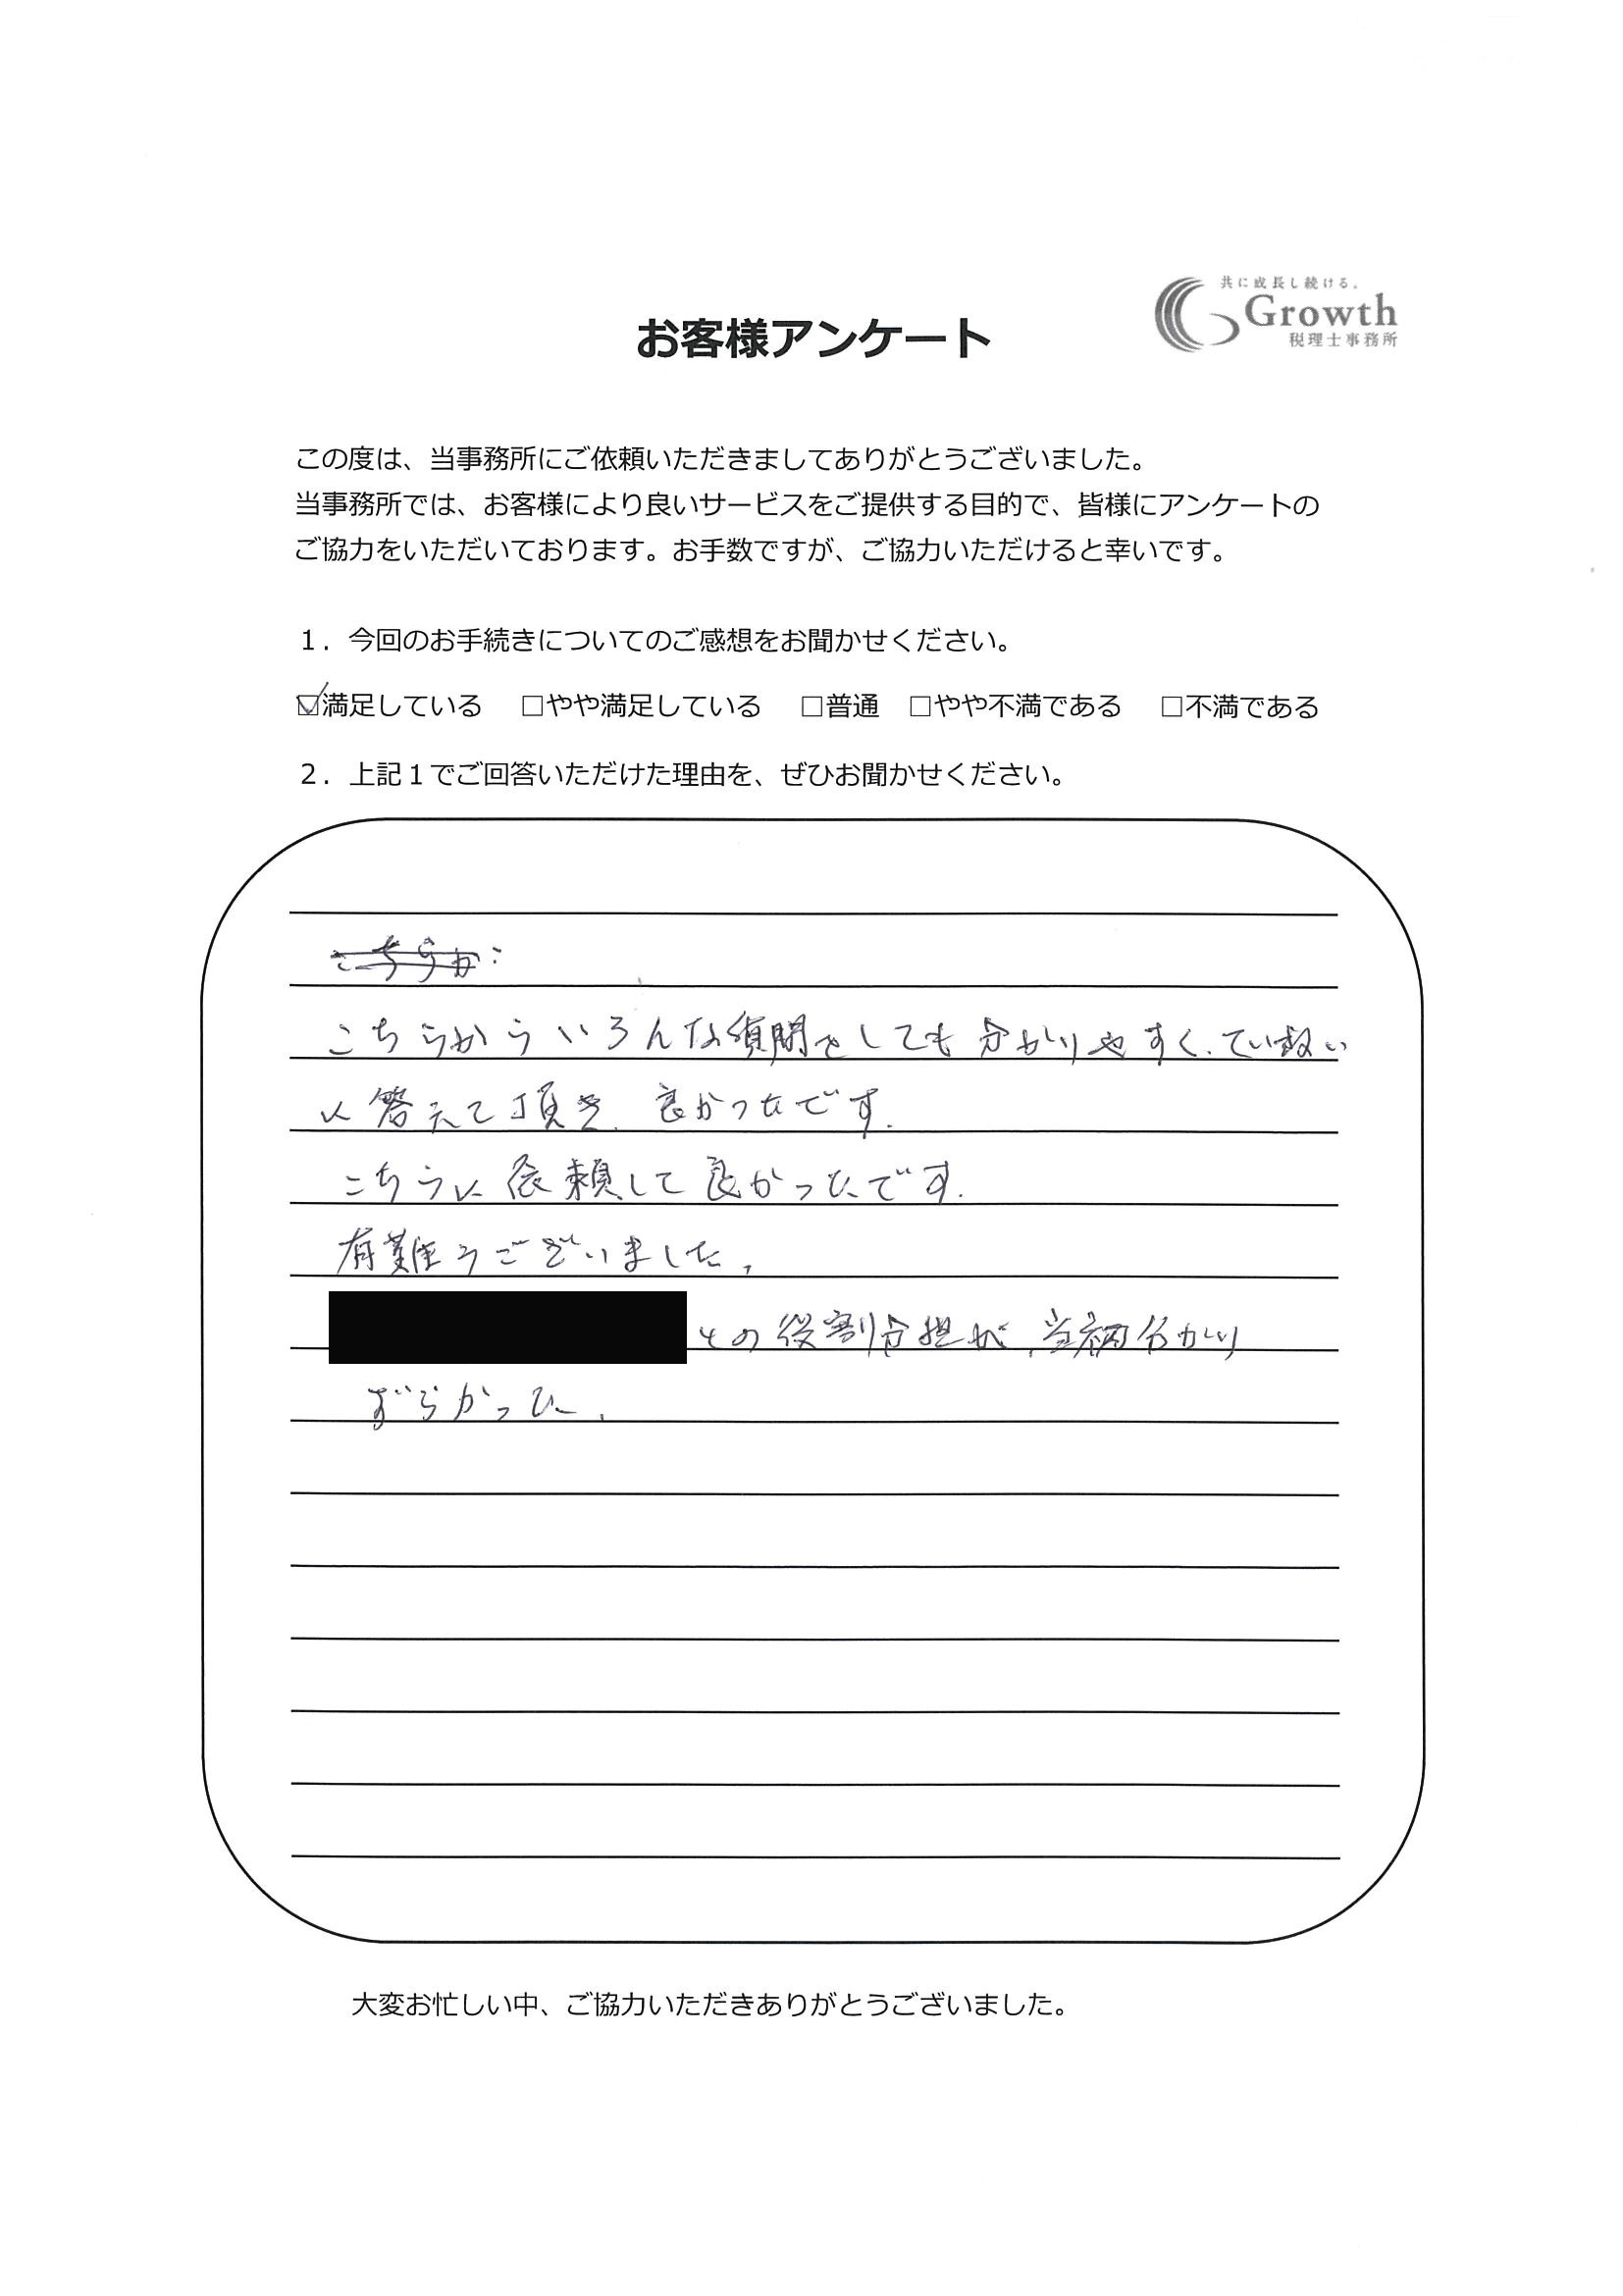 共に成長し続ける。
Growth
税理士事務所
お客様アンケート
この度は、当事務所にご依頼いただきましてありがとうございました。
当事務所では、お客様により良いサービスをご提供する目的で、皆様にアンケートの
ご協力をいただいております。お手数ですが、ご協力いただけると幸いです。
１．今回のお手続きについてのご感想をお聞かせください。
☑満足している □やや満足している □普通 □やや不満である □不満である
２．上記１でご回答いただけた理由を、ぜひお聞かせください。
こちらか
こちらからいろんな質問をしても分かりやすく、てい寧い
に答えて頂き、良かったです。
こちらに依頼して良かったです。
有難うございました。
との役割分担が、当初分かり
ずらかった。
大変お忙しい中、ご協力いただきありがとうございました。